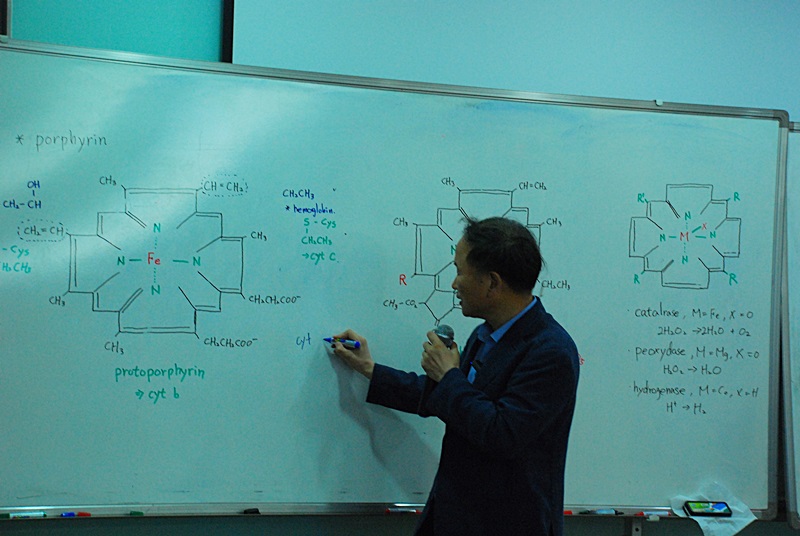 * porphyrin
OH
CH₂-CH
CH₂=CH
- Cys
H₂CH₃
CH₃
CH=CH₂
CH₃
CH₂CH₂COO⁻
CH₂CH₂COO⁻
CH₃
CH₃
N
N
Fe
N
N
protoporphyrin
⇒ cyt b
CH₂CH₃
* hemoglobin
S - Cys
CH₂CH₃
→ cyt c
cyt
CH₃
CH=CH₂
CH₃
CH₃
R
CH₃-CO₂
CH₂CH₃
R
R
R
R
N
N
M
X
N
N
· catalrase, M=Fe, X=O
2H₂O₂ → 2H₂O + O₂
· peoxydase, M=Mg, X=O
H₂O₂ → H₂O
· hydrogenase, M=Co, X=H
H⁺ → H₂